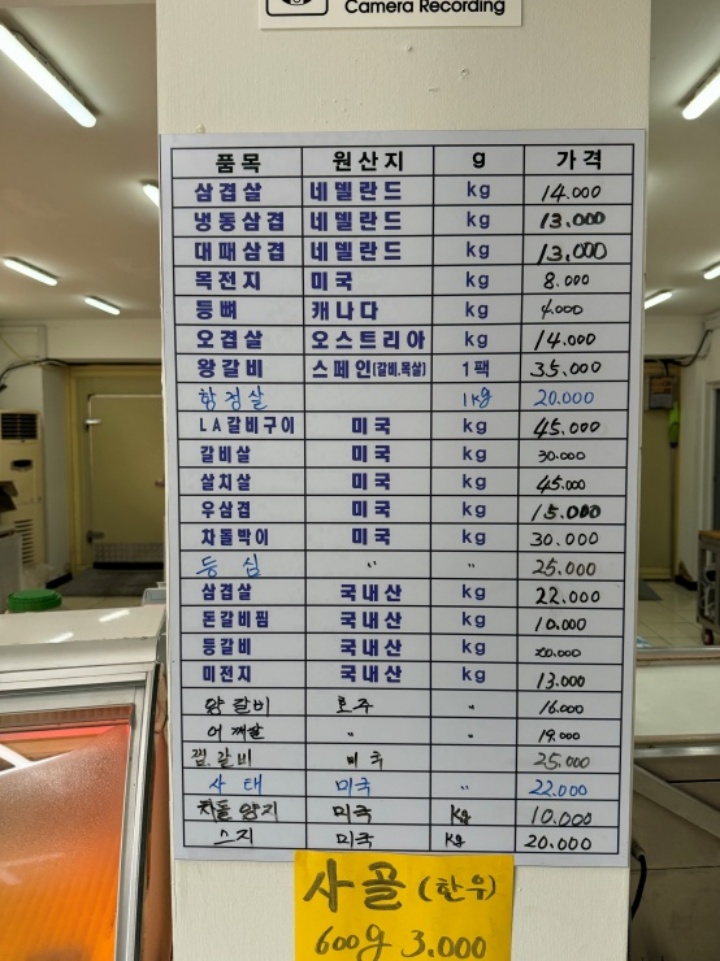 Camera Recording
품목 원산지 g 가격
삼겹살 네델란드 kg 14.000
냉동삼겹 네델란드 kg 13.000
대패삼겹 네델란드 kg 13,000
목전지 미국 kg 8.000
등뼈 캐나다 kg 4.000
오겹살 오스트리아 kg 14.000
왕갈비 스페인(갈비.목살) 1팩 35.000
항정살 1kg 20.000
LA갈비구이 미국 kg 45.000
갈비살 미국 kg 30.000
살치살 미국 kg 45.000
우삼겹 미국 kg 15.000
차돌박이 미국 kg 30.000
등심 〃 〃 25.000
삼겹살 국내산 kg 22.000
돈갈비찜 국내산 kg 10.000
등갈비 국내산 kg 20.000
미전지 국내산 kg 13.000
양갈비 호주 〃 16.000
어깨살 〃 〃 19.000
찜.갈비 미국 25.000
사태 미국 〃 22.000
차돌양지 미국 Kg 10.000
스지 미국 Kg 20.000
사골(한우)
600g 3.000